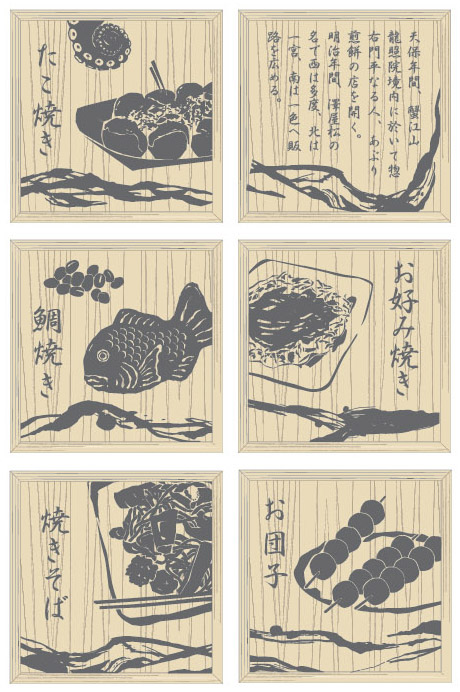 たこ焼き
天保年間、蟹江山
龍照院境内に於いて惣
右門平なる人、あぶり
煎餅の店を開く。
明治年間、澤屋松の
名で西は多度、北は
一宮、南は一色へ販
路を広める。
鯛焼き
お好み焼き
焼きそば
お団子